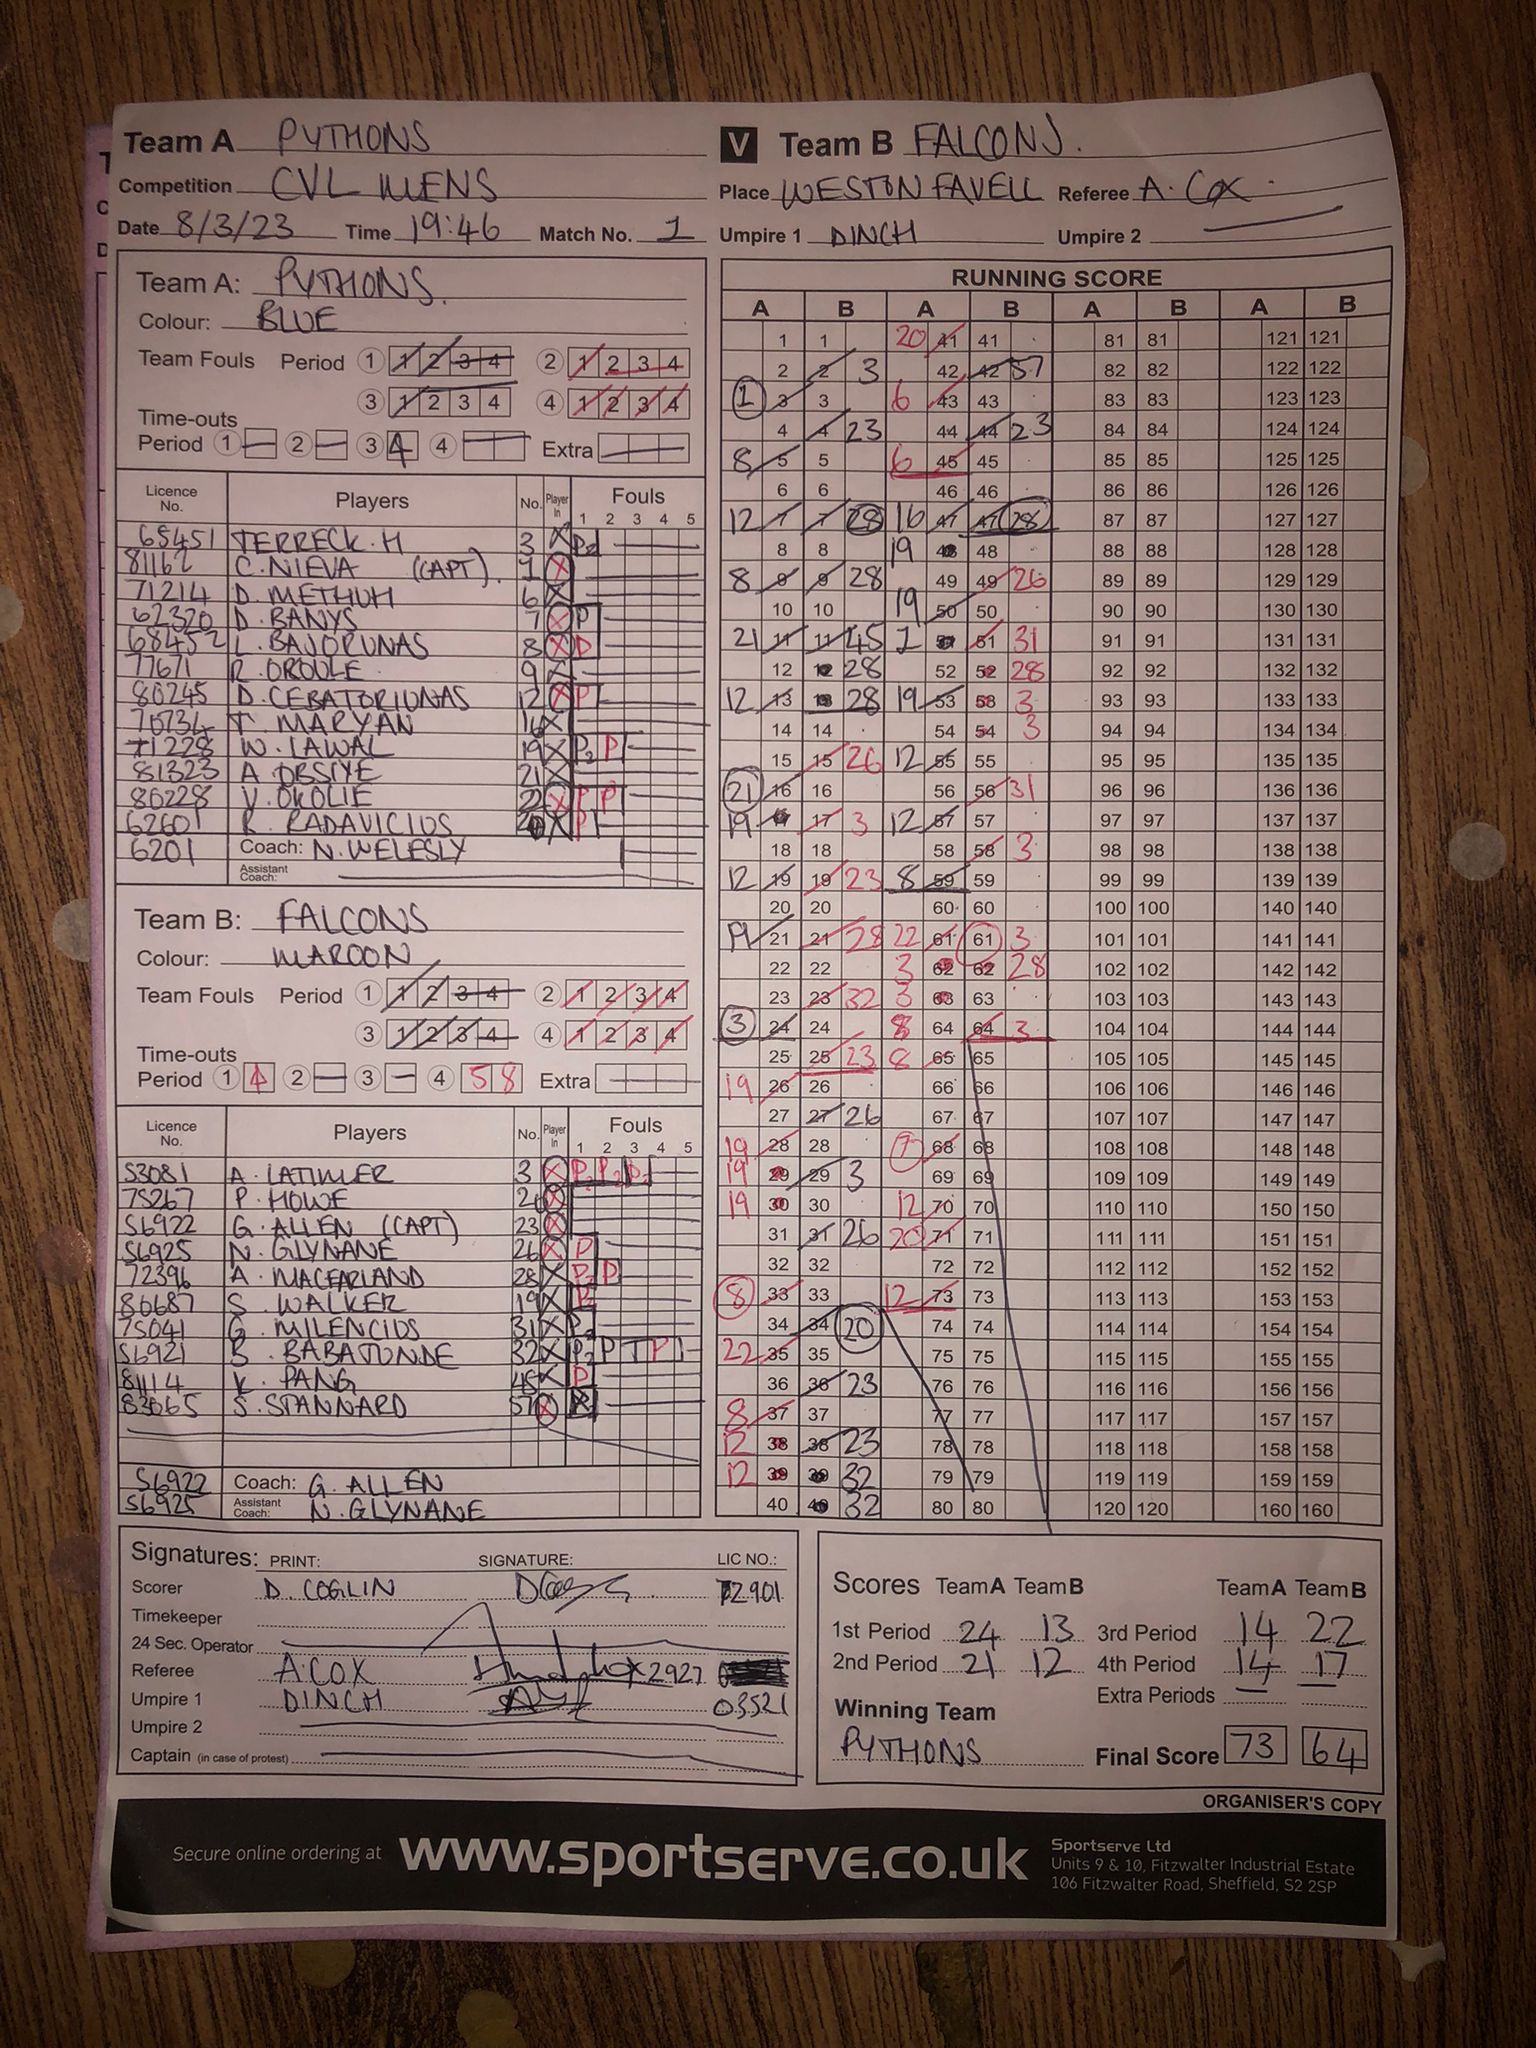 Team A PYTHONS V Team B FALCONS.
Competition CVL MENS Place WESTON FAVELL Referee A. COX
Date 8/3/23 Time 19:46 Match No. 1 Umpire 1 DINCH Umpire 2
Team A: PYTHONS.
Colour: BLUE
Team Fouls Period 1 1 2 3 4 2 1 2 3 4
3 1 2 3 4 4 1 2 3 4
Time-outs
Period 1 2 3 4 4 Extra
Licence No. Players No. Player in Fouls 1 2 3 4 5
65451 TERRECK. H 3 X P2
81162 C. NIEVA (CAPT). 1 X
71214 D. METHUH 6 X
62320 D. BANYS 7 X P
68452 L. BAJORUNAS 8 X P
77671 R. ORODLE 9 X
80245 D. CEBATORIUNAS 12 X P
70734 T. MARYAN 16 X
71228 W. LAWAL 19 X P2 P
81323 A OBSIYE 21 X
80228 V. OKOLIE 22 X P P
62601 R. RADAVICIUS 20 X P
6201 Coach: N. WELESLY
Assistant Coach:
Team B: FALCONS
Colour: MAROON
Team Fouls Period 1 1 2 3 4 2 1 2 3 4
3 1 2 3 4 4 1 2 3 4
Time-outs
Period 1 4 2 3 4 5 8 Extra
Licence No. Players No. Player in Fouls 1 2 3 4 5
53081 A. LATIMER 3 X P2 P2 P2
75267 P. HOWE 20 X
56922 G. ALLEN (CAPT) 23 X
56925 N. GLYNANE 26 X P
72396 A. MACFARLAND 28 X P2 P
80687 S. WALKER 19 X P2
75041 G. MILENCIUS 31 X P2
56921 B. BABATUNDE 32 X P2 P T P
81114 K. PANG 45 X P
83065 S. STANNARD 57 X
56922 Coach: G. ALLEN
56925 Assistant Coach: N. GLYNANE
RUNNING SCORE
A B A B A B A B
1 1 20 41 41 81 81 121 121
2 2 3 42 42 57 82 82 122 122
1 3 3 6 43 43 83 83 123 123
4 4 23 44 44 23 84 84 124 124
8 5 5 6 45 45 85 85 125 125
6 6 46 46 86 86 126 126
12 7 7 28 16 47 47 28 87 87 127 127
8 8 19 48 48 88 88 128 128
8 9 9 28 49 49 26 89 89 129 129
10 10 19 50 50 90 90 130 130
21 11 11 45 1 51 51 31 91 91 131 131
12 12 28 52 52 28 92 92 132 132
12 13 13 28 19 53 53 3 93 93 133 133
14 14 54 54 3 94 94 134 134
15 15 26 12 55 55 95 95 135 135
21 16 16 56 56 31 96 96 136 136
19 17 17 3 12 57 57 97 97 137 137
18 18 58 58 3 98 98 138 138
12 19 19 23 8 59 59 99 99 139 139
20 20 60 60 100 100 140 140
19 21 21 28 22 61 61 3 101 101 141 141
22 22 3 62 62 28 102 102 142 142
23 23 32 3 63 63 103 103 143 143
3 24 24 8 64 64 3 104 104 144 144
25 25 23 8 65 65 105 105 145 145
19 26 26 66 66 106 106 146 146
27 27 26 67 67 107 107 147 147
19 28 28 7 68 68 108 108 148 148
19 29 29 3 69 69 109 109 149 149
19 30 30 12 70 70 110 110 150 150
31 31 26 20 71 71 111 111 151 151
32 32 72 72 112 112 152 152
8 33 33 12 73 73 113 113 153 153
34 34 20 74 74 114 114 154 154
22 35 35 75 75 115 115 155 155
36 36 23 76 76 116 116 156 156
8 37 37 77 77 117 117 157 157
12 38 38 23 78 78 118 118 158 158
12 39 39 32 79 79 119 119 159 159
40 40 32 80 80 120 120 160 160
Signatures: PRINT: SIGNATURE: LIC NO.:
Scorer D. COGLIN 72901
Timekeeper
24 Sec. Operator
Referee A. COX 2927
Umpire 1 DINCH 03521
Umpire 2
Captain (in case of protest)
Scores Team A Team B Team A Team B
1st Period 24 13 3rd Period 14 22
2nd Period 21 12 4th Period 14 17
Extra Periods
Winning Team
PYTHONS Final Score 73 64
ORGANISER'S COPY
Secure online ordering at www.sportserve.co.uk
Sportserve Ltd
Units 9 & 10, Fitzwalter Industrial Estate
106 Fitzwalter Road, Sheffield, S2 2SP